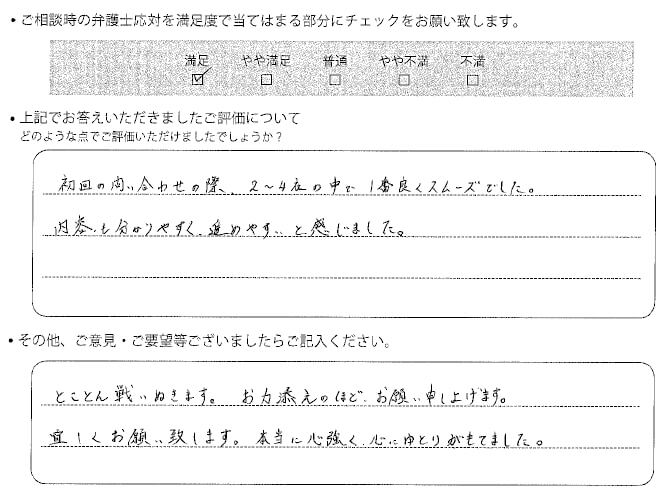 • ご相談時の弁護士応対を満足度で当てはまる部分にチェックをお願い致します。
満足 やや満足 普通 やや不満 不満
☑ □ □ □ □
• 上記でお答えいただきましたご評価について
どのような点でご評価いただけましたでしょうか？
初回の問い合わせの際、2～4社の中で1番良くスムーズでした。
内容も分かりやすく、進めやすいと感じました。
• その他、ご意見・ご要望等ございましたらご記入ください。
とことん戦いぬきます。お力添えのほど、お願い申し上げます。
宜しくお願い致します。本当に心強く、心にゆとりがもてました。